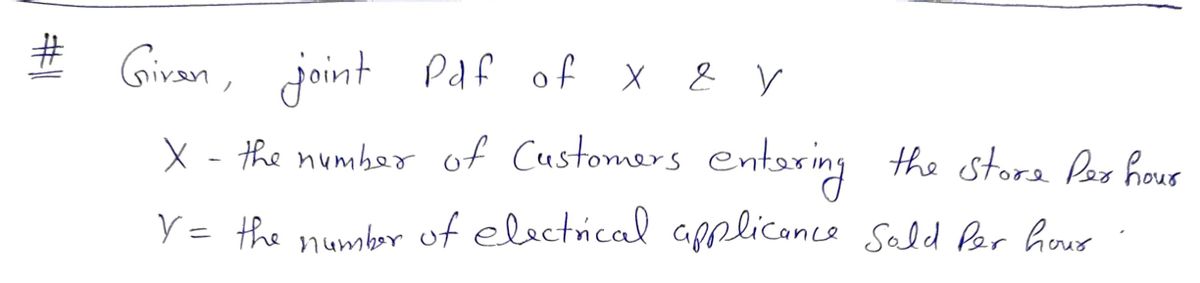 # Given, joint Pdf of X & Y
X - the number of Customers entering the store Per hour
Y = the number of electrical applicance Sold Per hour.